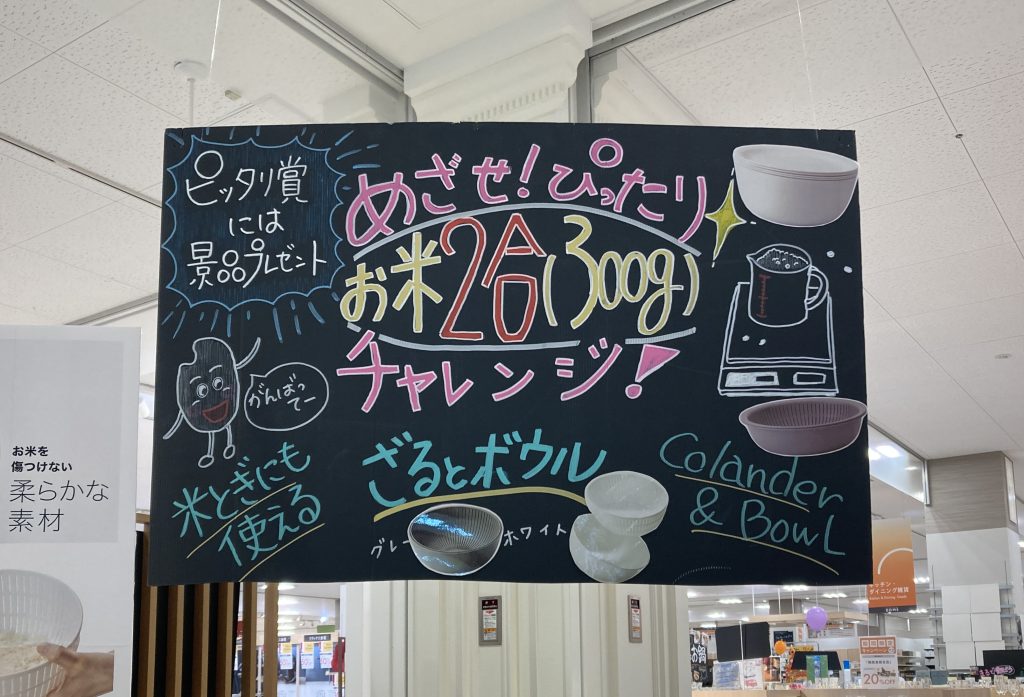 ピッタリ賞
には
景品プレゼント
めざせ!ぴったり
お米2合(300g)
チャレンジ!
がんばっ
てー
米とぎにも
使える
ざるとボウル
グレー
ホワイト
Colander
& Bowl
お米を
傷つけない
柔らかな
素材
キッチン・
ダイニング雑貨
20%